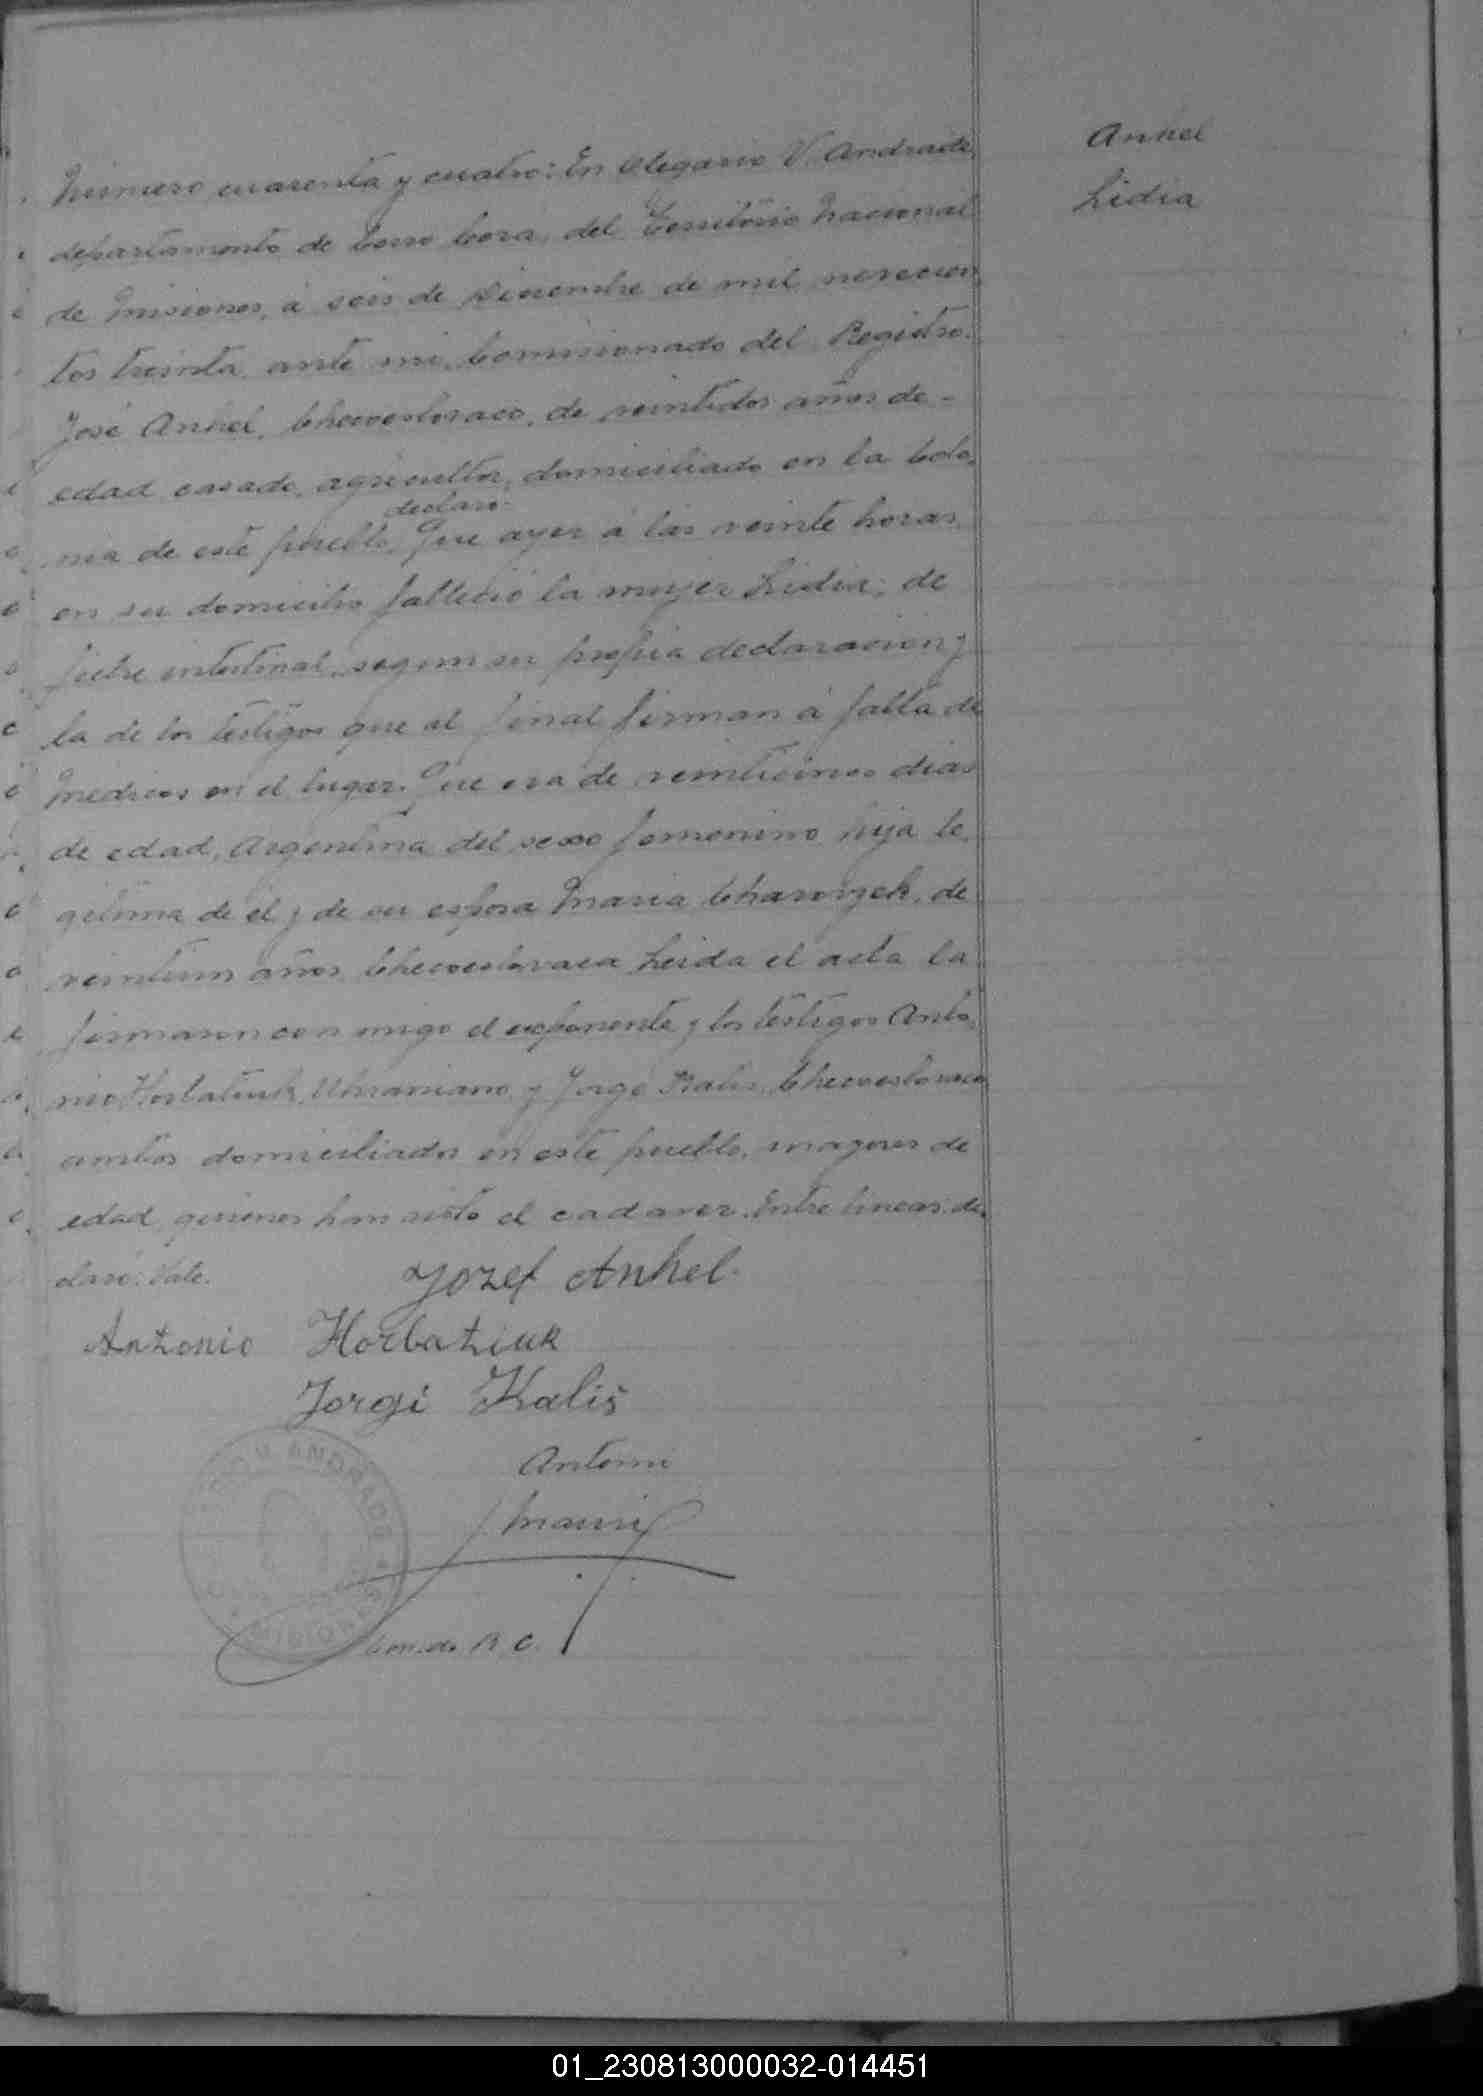 Anhel
Lidia
Número cuarenta y cuatro: En Olegario V. Andrade,
departamento de Cerro Corá, del Territorio Nacional
de Misiones, á seis de Diciembre de mil novecien
tos treinta, ante mi, Comisionado del Registro.
José Anhel, Checoeslovaco, de veintidos años de -
edad casado, agricultor, domiciliado en la Colo,
declaro.
nia de este pueblo, Que ayer á las veinte horas,
en su domicilio falleció la mujer Lidia; de
fiebre intestinal, segun su propia declaracion y
la de los testigos que al final firman á falta de
Medicos en el lugar. Que era de veinticinco dias
de edad, Argentina, del sexo femenino hija le,
gitima de el y de su esposa Maria
de
veintiun años, Checoeslovaca Leida el acta la
firmaron con migo el exponente y los testigos Anto,
nio Horbatiuk, Ukraniano y Jorge Kalis, Checoeslovaco
ambos domiciliados en este pueblo, mayores de
edad, quienes han visto el cadaver. Entre lineas: de,
claró: Vale.
Jozef Anhel.
Antonio Horbatiuk
Jorgi Kališ
Antoni
R. C.
ANDRADE
MISIONES
01_230813000032-014451